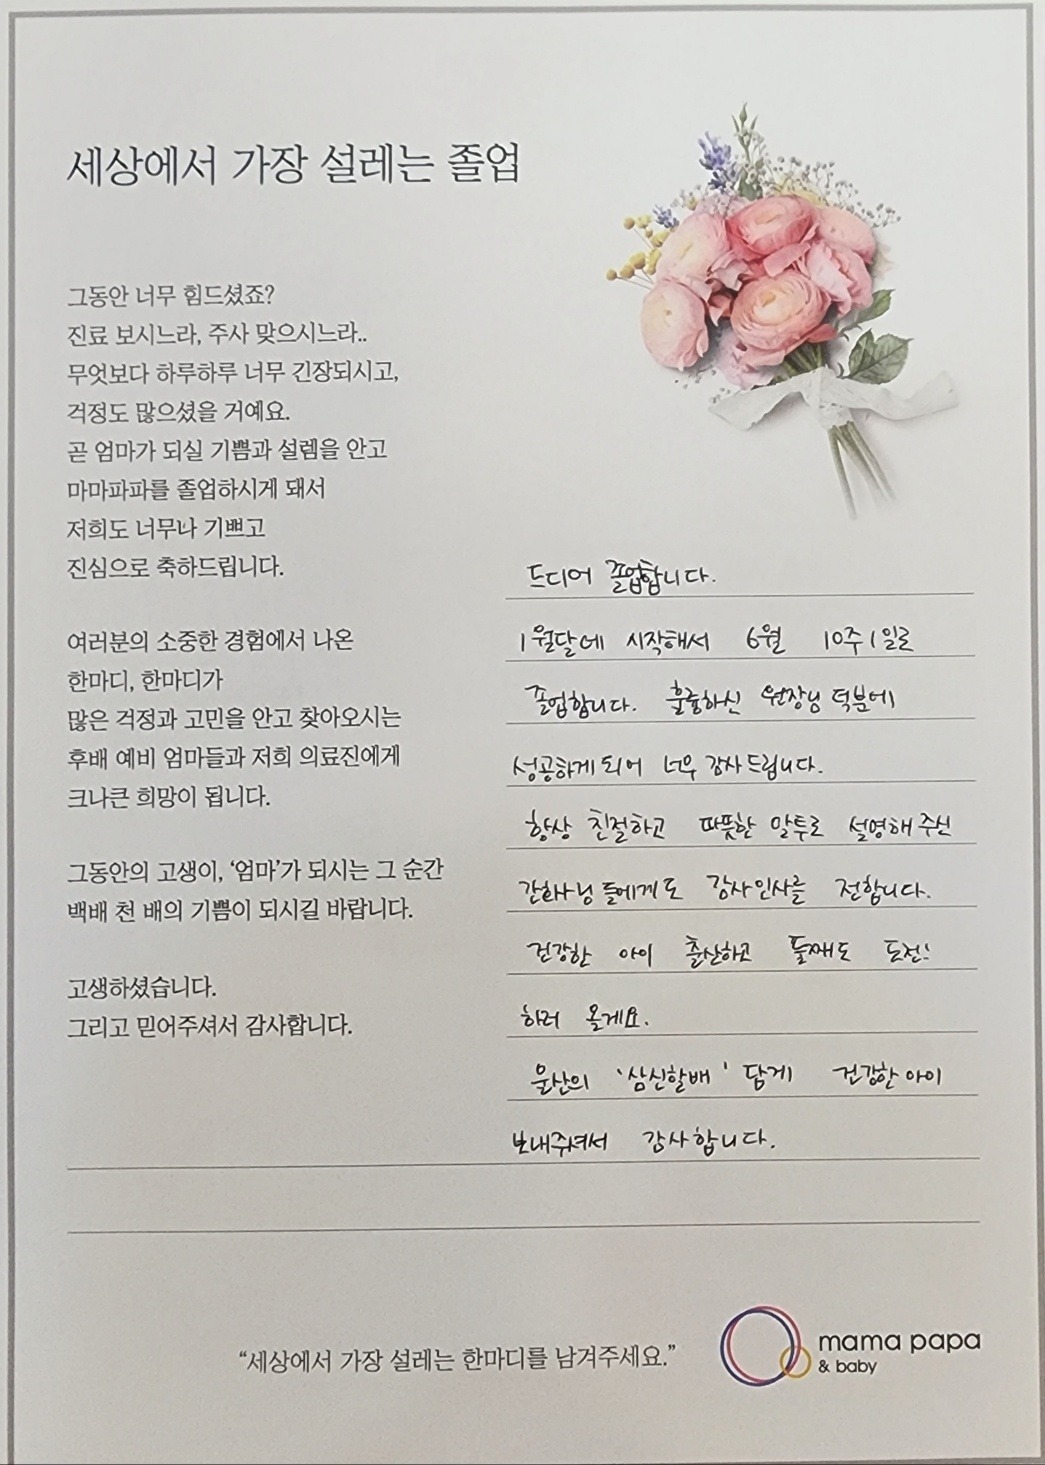 세상에서 가장 설레는 졸업
그동안 너무 힘드셨죠?
진료 보시느라, 주사 맞으시느라..
무엇보다 하루하루 너무 긴장되시고,
걱정도 많으셨을 거예요.
곧 엄마가 되실 기쁨과 설렘을 안고
마마파파를 졸업하시게 돼서
저희도 너무나 기쁘고
진심으로 축하드립니다.
여러분의 소중한 경험에서 나온
한마디, 한마디가
많은 걱정과 고민을 안고 찾아오시는
후배 예비 엄마들과 저희 의료진에게
크나큰 희망이 됩니다.
그동안의 고생이, ‘엄마’가 되시는 그 순간
백배 천 배의 기쁨이 되시길 바랍니다.
고생하셨습니다.
그리고 믿어주셔서 감사합니다.
드디어 졸업합니다.
1월달에 시작해서 6월 10주1일로
졸업합니다. 훌륭하신 원장님 덕분에
성공하게 되어 너무 감사드립니다.
항상 친절하고 따뜻한 말투로 설명해 주신
간호사님들에게도 감사인사를 전합니다.
건강한 아이 출산하고 둘째도 도전!
하러 올게요.
울산의 '삼신할배' 답게 건강한 아이
보내주셔서 감사합니다.
“세상에서 가장 설레는 한마디를 남겨주세요.”
mama papa
& baby